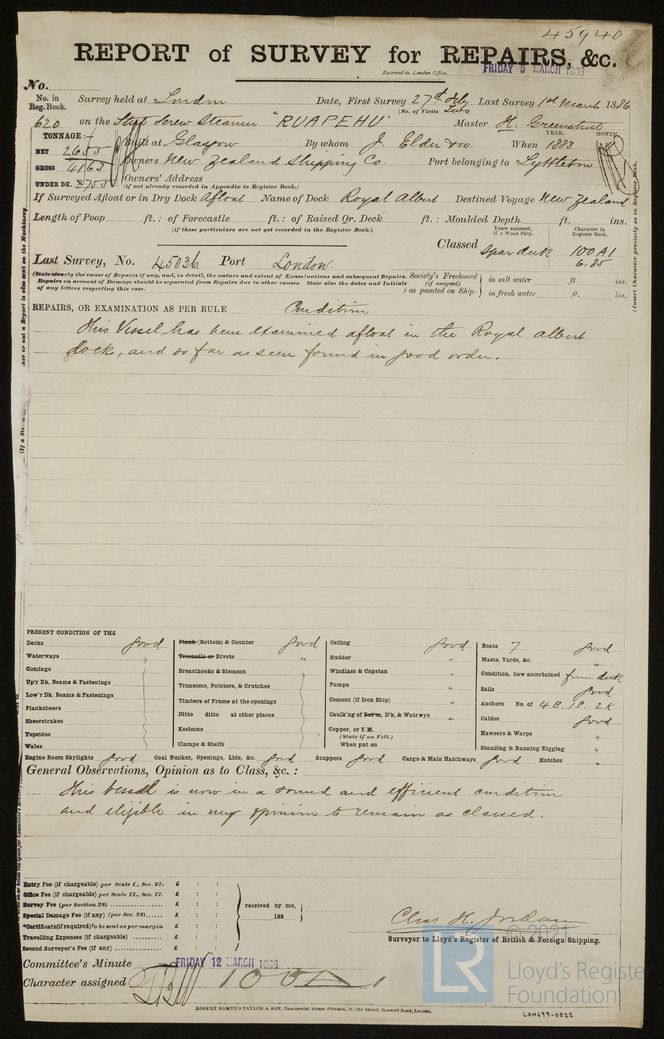 45940
REPORT of SURVEY for REPAIRS, &c.
Received in London Office, FRIDAY 5 MARCH 1886
No.
No. in Reg. Book. Survey held at London Date, First Survey 27th Feby Last Survey 1st March 1886
(No. of Visits Two)
620 on the Screw Steamer "RUAPEHU" Master H. Greenstreet
TONNAGE:— Built at Glasgow By whom J. Elder & Co. When 1883
YEAR. MONTH.
NET 2655 Owners New Zealand Shipping Co. Port belonging to Lyttleton
GROSS 4163
UNDER DK. Owners' Address
(if not already recorded in Appendix to Register Book.)
If Surveyed Afloat or in Dry Dock Afloat Name of Dock Royal Albert Destined Voyage New Zealand
Length of Poop ft.: of Forecastle ft.: of Raised Qr. Deck ft.: Moulded Depth ft. ins.
(if these particulars are not yet recorded in the Register Book.)
Years assigned, if a Wood Ship. Character in Register Book.
Classed Spar deck 100A1
6.85
Last Survey, No. 45036 Port London
(State clearly the cause of Repairs if any, and, in detail, the nature and extent of Examinations and subsequent Repairs.
Repairs on account of Damage should be separated from Repairs due to other causes. State also the dates and Initials
of any letters respecting this case.)
Society's Freeboard (if assigned) as painted on Ship. in salt water ft ins.
in fresh water ft. ins.
(Insert Character precisely as in Register Book.)
REPAIRS, OR EXAMINATION AS PER RULE Condition
This Vessel has been examined afloat in the Royal Albert
dock, and so far as seen found in good order.
PRESENT CONDITION OF THE
Decks good
Waterways "
Comings
Up'r Dk. Beams & Fastenings
Low'r Dk. Beams & Fastenings
Planksheers
Sheerstrakes
Topsides
Wales
Plank (Bottom) & Counter good
Treenails or Rivets "
Breasthooks & Stemson
Transoms, Pointers, & Crutches
Timbers of Frame at the openings
Ditto ditto at other places
Keelsons
Clamps & Shelfs
Ceiling good
Rudder "
Windlass & Capstan "
Pumps "
Cement (if Iron Ship) "
Caulk'ng of Bot'm, D'k, & Watrwys "
Copper, or Y.M.
(State if on Felt.)
When put on
Boats 7 good
Masts, Yards, &c. "
Condition, how ascertained from deck
Sails good
Anchors No. of 4B. 1S. 2K
Cables good
Hawsers & Warps "
Standing & Running Rigging "
Engine Room Skylights good Coal Bunker, Openings, Lids, &c. good Scuppers good Cargo & Main Hatchways good Hatches "
General Observations, Opinion as to Class, &c.:
This vessel is now in a sound and efficient condition
and eligible in my opinion to remain as classed.
Entry Fee (if chargeable) per Scale I., Sec. 27. £ : :
Office Fee (if chargeable) per Scale II., Sec. 27. £ : :
Survey Fee (per Section 28) £ : :
Special Damage Fee (if any) (per Sec. 28) £ : :
*Certificate (if required) to be sent as per margin
Travelling Expenses (if chargeable) £ : :
Second Surveyor's Fee (if any) £ : :
received by me,
188
Chas H. Jordan
Surveyor to Lloyd's Register of British & Foreign Shipping.
Committee's Minute FRIDAY 12 MARCH 1886
Character assigned 100A1
ROBERT EDMUND TAYLOR & SON, Commercial Steam Printers, 19, Old Street, Goswell Road, London.
© 2021
LR
Lloyd's Register
Foundation
LON699-0022